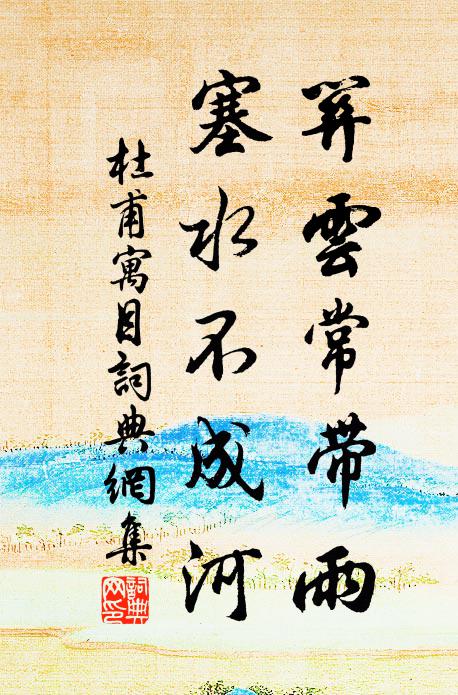 关雲常帶雨
塞水不成河
杜甫寓目詞典網集